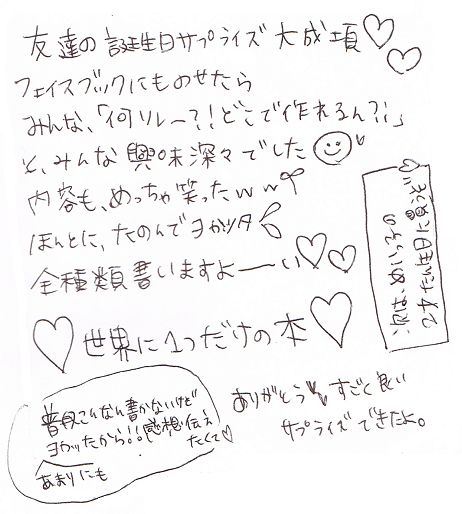 友達の誕生日サプライズ大成項♡♡
フェイスブックにものせたら
みんな、「何ソレー?!どこで作れるん?!」
と、みんな興味深々でした
内容も、めっちゃ笑ったww
ほんとに、たのんでヨかッタ
全種類買いますよーーい♡♡
♡世界に1つだけの本♡
次は、めいっ子の
2才たん生日に買うぞ♡
普段こんなん書かないけど
ヨかったから!!感想伝え
たくて♡
あまりにも
ありがとう すごく良い
サプライズできたよ。